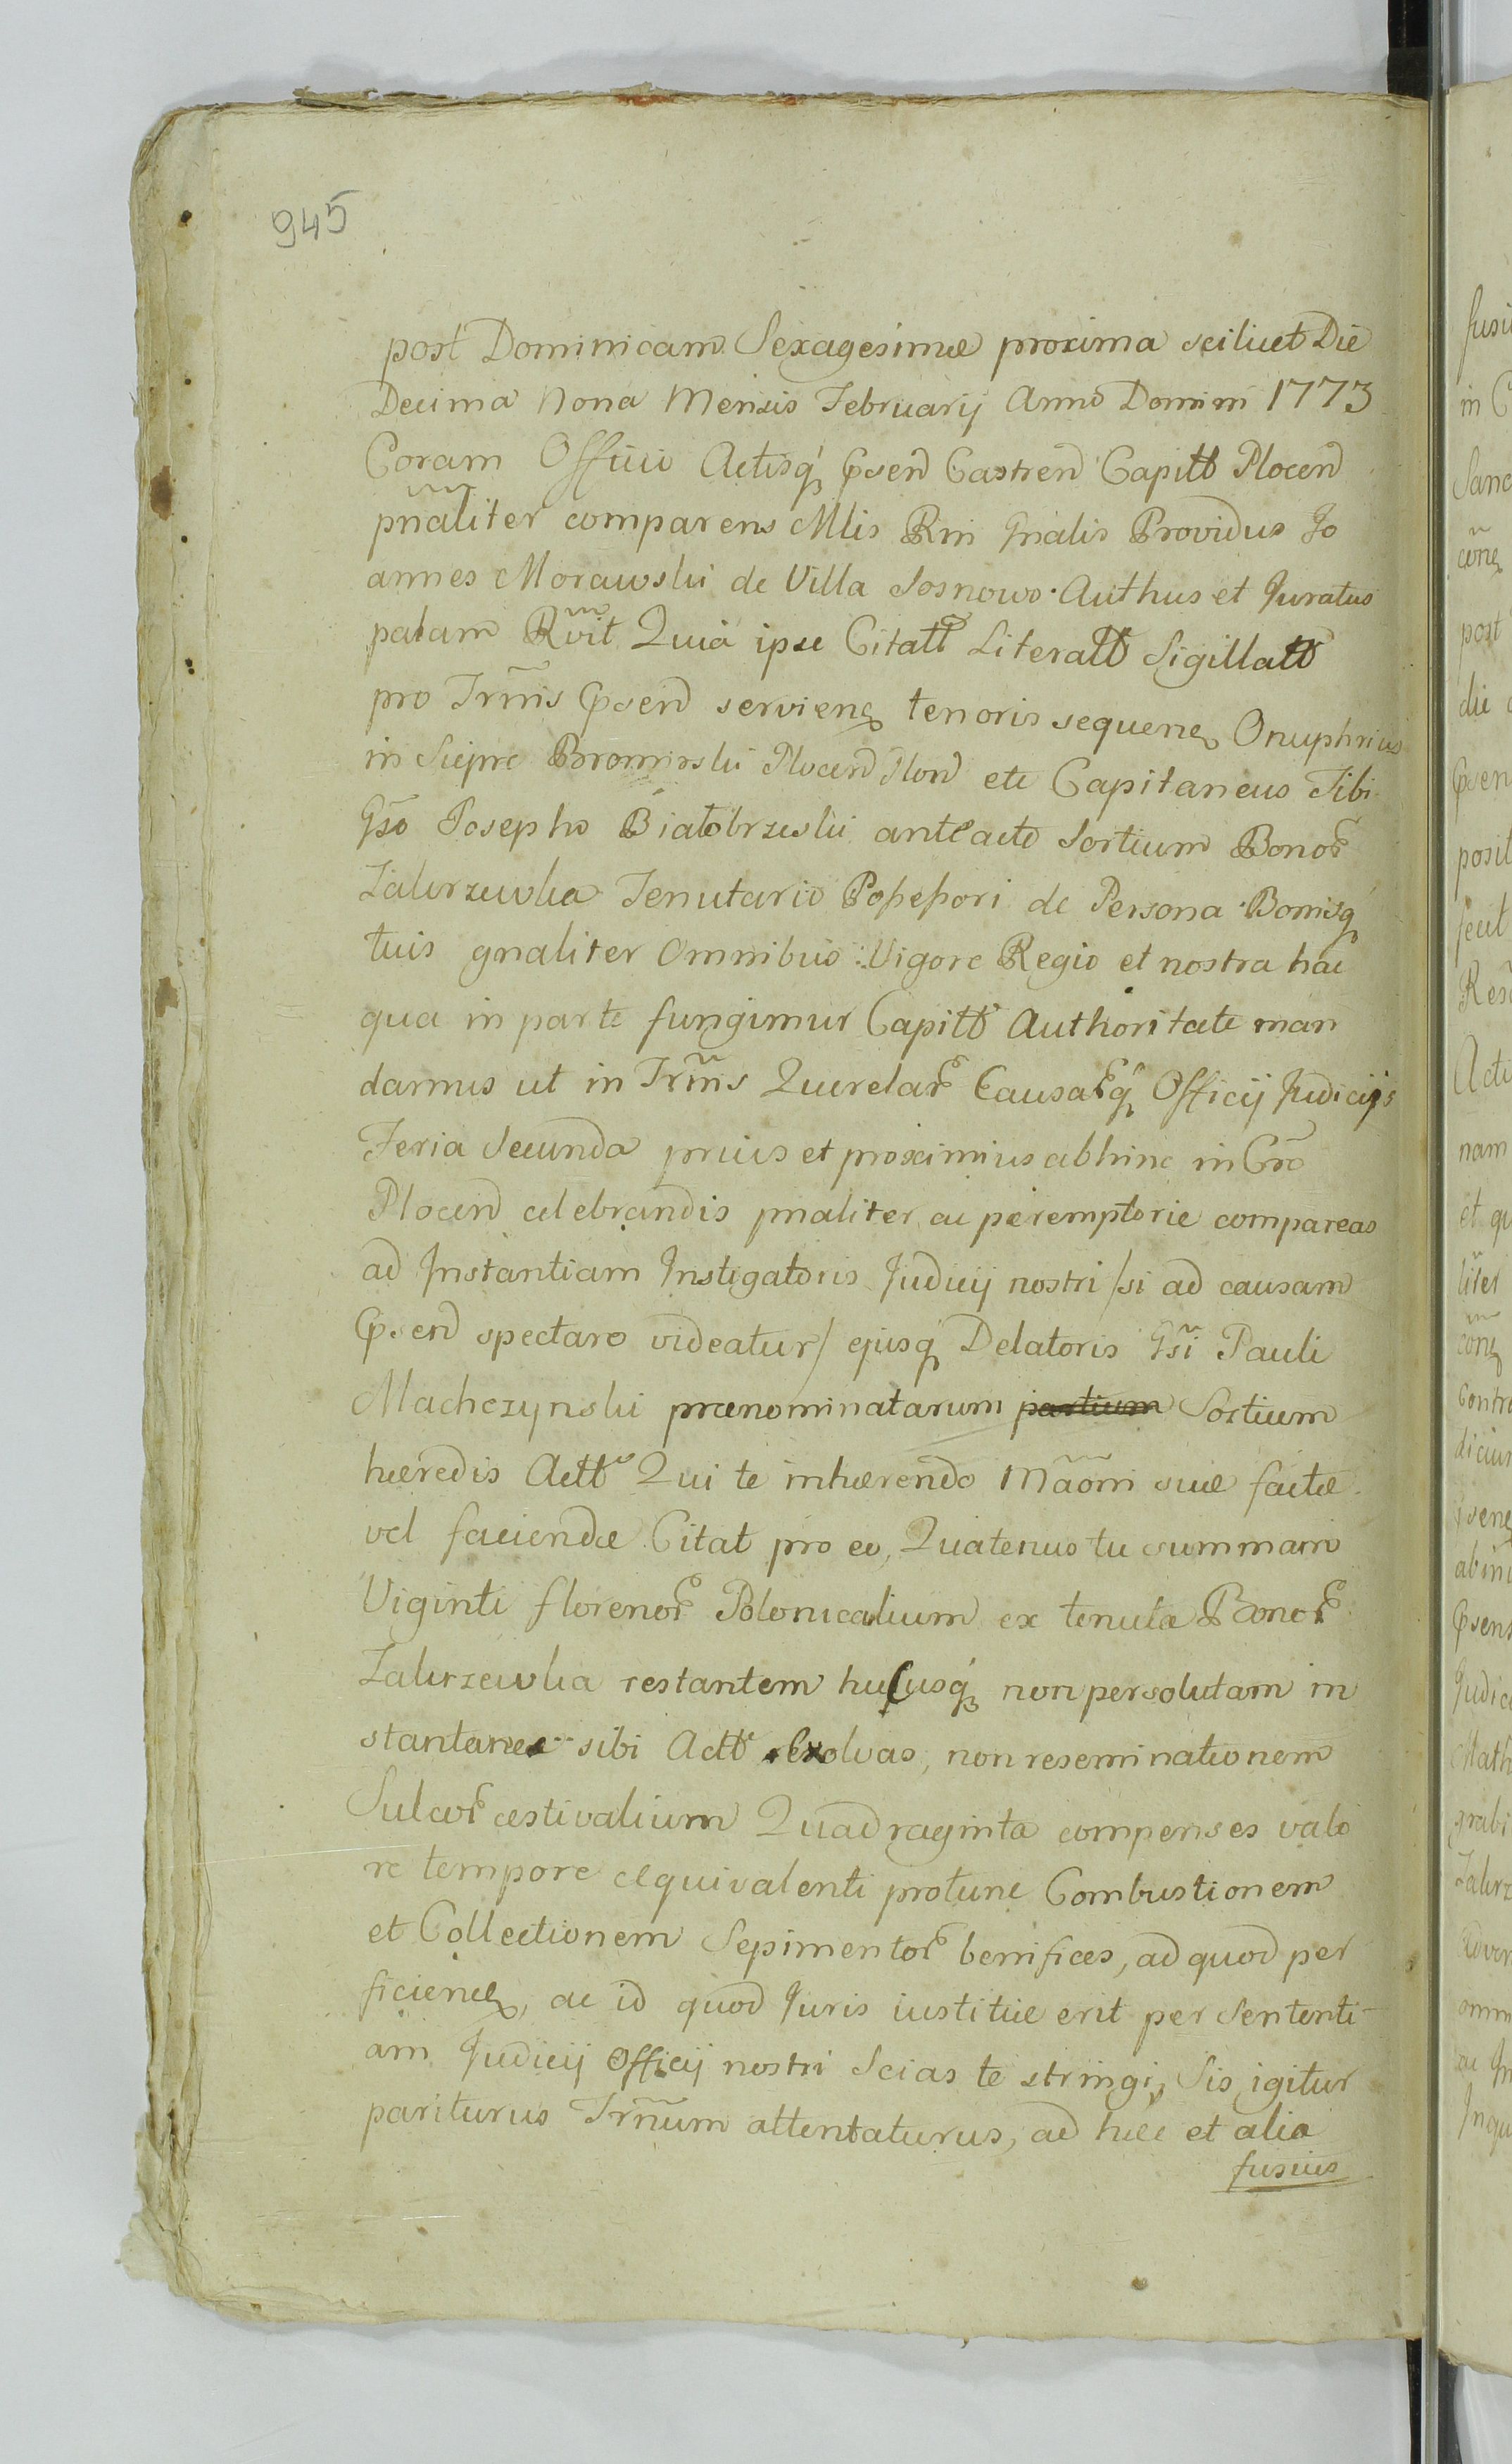 945
post Dominicam Sexagesimæ proxima scilicet Die
Decima Nona Mensis Februarij Anno Domini 1773
Coram Officio Actisq́ Psen Castren Capitt Plocen
pn̄aliter comparens Mlis Rni Gnalis Providus Jo
annes Morawski de Villa Sosnowo Authus et Juratus
palam Rv̄it Quia ipse Citatt Literatt Sigillatt
pro Trm̄is Psen servien tenoris sequen Onuphrius
in Siepre Bromirski Plocen Plon etc Capitaneus Tibi
Gs̄o Josepho Białobrzeski anteacto Sortium Bonor
Zakrzewka Tenutario Popepori de Persona Bonisq́
tuis gnaliter Omnibus Vigore Regio et nostra hac
qua in parte fungimur Capitt Authoritate man
damus ut in Trm̄is Querelar Causarq́ Officij Judicijs
Feria Secunda prius et proximius abhinc in Cro
Plocen celebrandis pnaliter ac peremptorie compareas
ad Instantiam Instigatoris Judicij nostri /si ad causam
Psen spectare videatur/ ejusq́ Delatoris Gs̄i Pauli
Machczynski prænominatarum partium Sortium
hæredis Actt Qui te inhærendo Māoni suæ factæ
vel faciendæ Citat pro eo, Quatenus tu summam
Viginti florenor Polonicalium ex tenuta Bonor
Zakrzewka restantem hucusq́ non persolutam in
stantanee sibi Actt exolvas, non reseminationem
Sulcor æstivalium Quadraginta compenses valo
re tempore æquivalenti protunc Combustionem
et Collectionem Sepimentor benifices, ad quod per
ficien, ac id quod Juris iustitiæ erit per Sententi-
am Judicij Officij nostri Scias te stringi, Sis igitur
pariturus Trm̄um attentaturus, ad hæc et alia
fusius